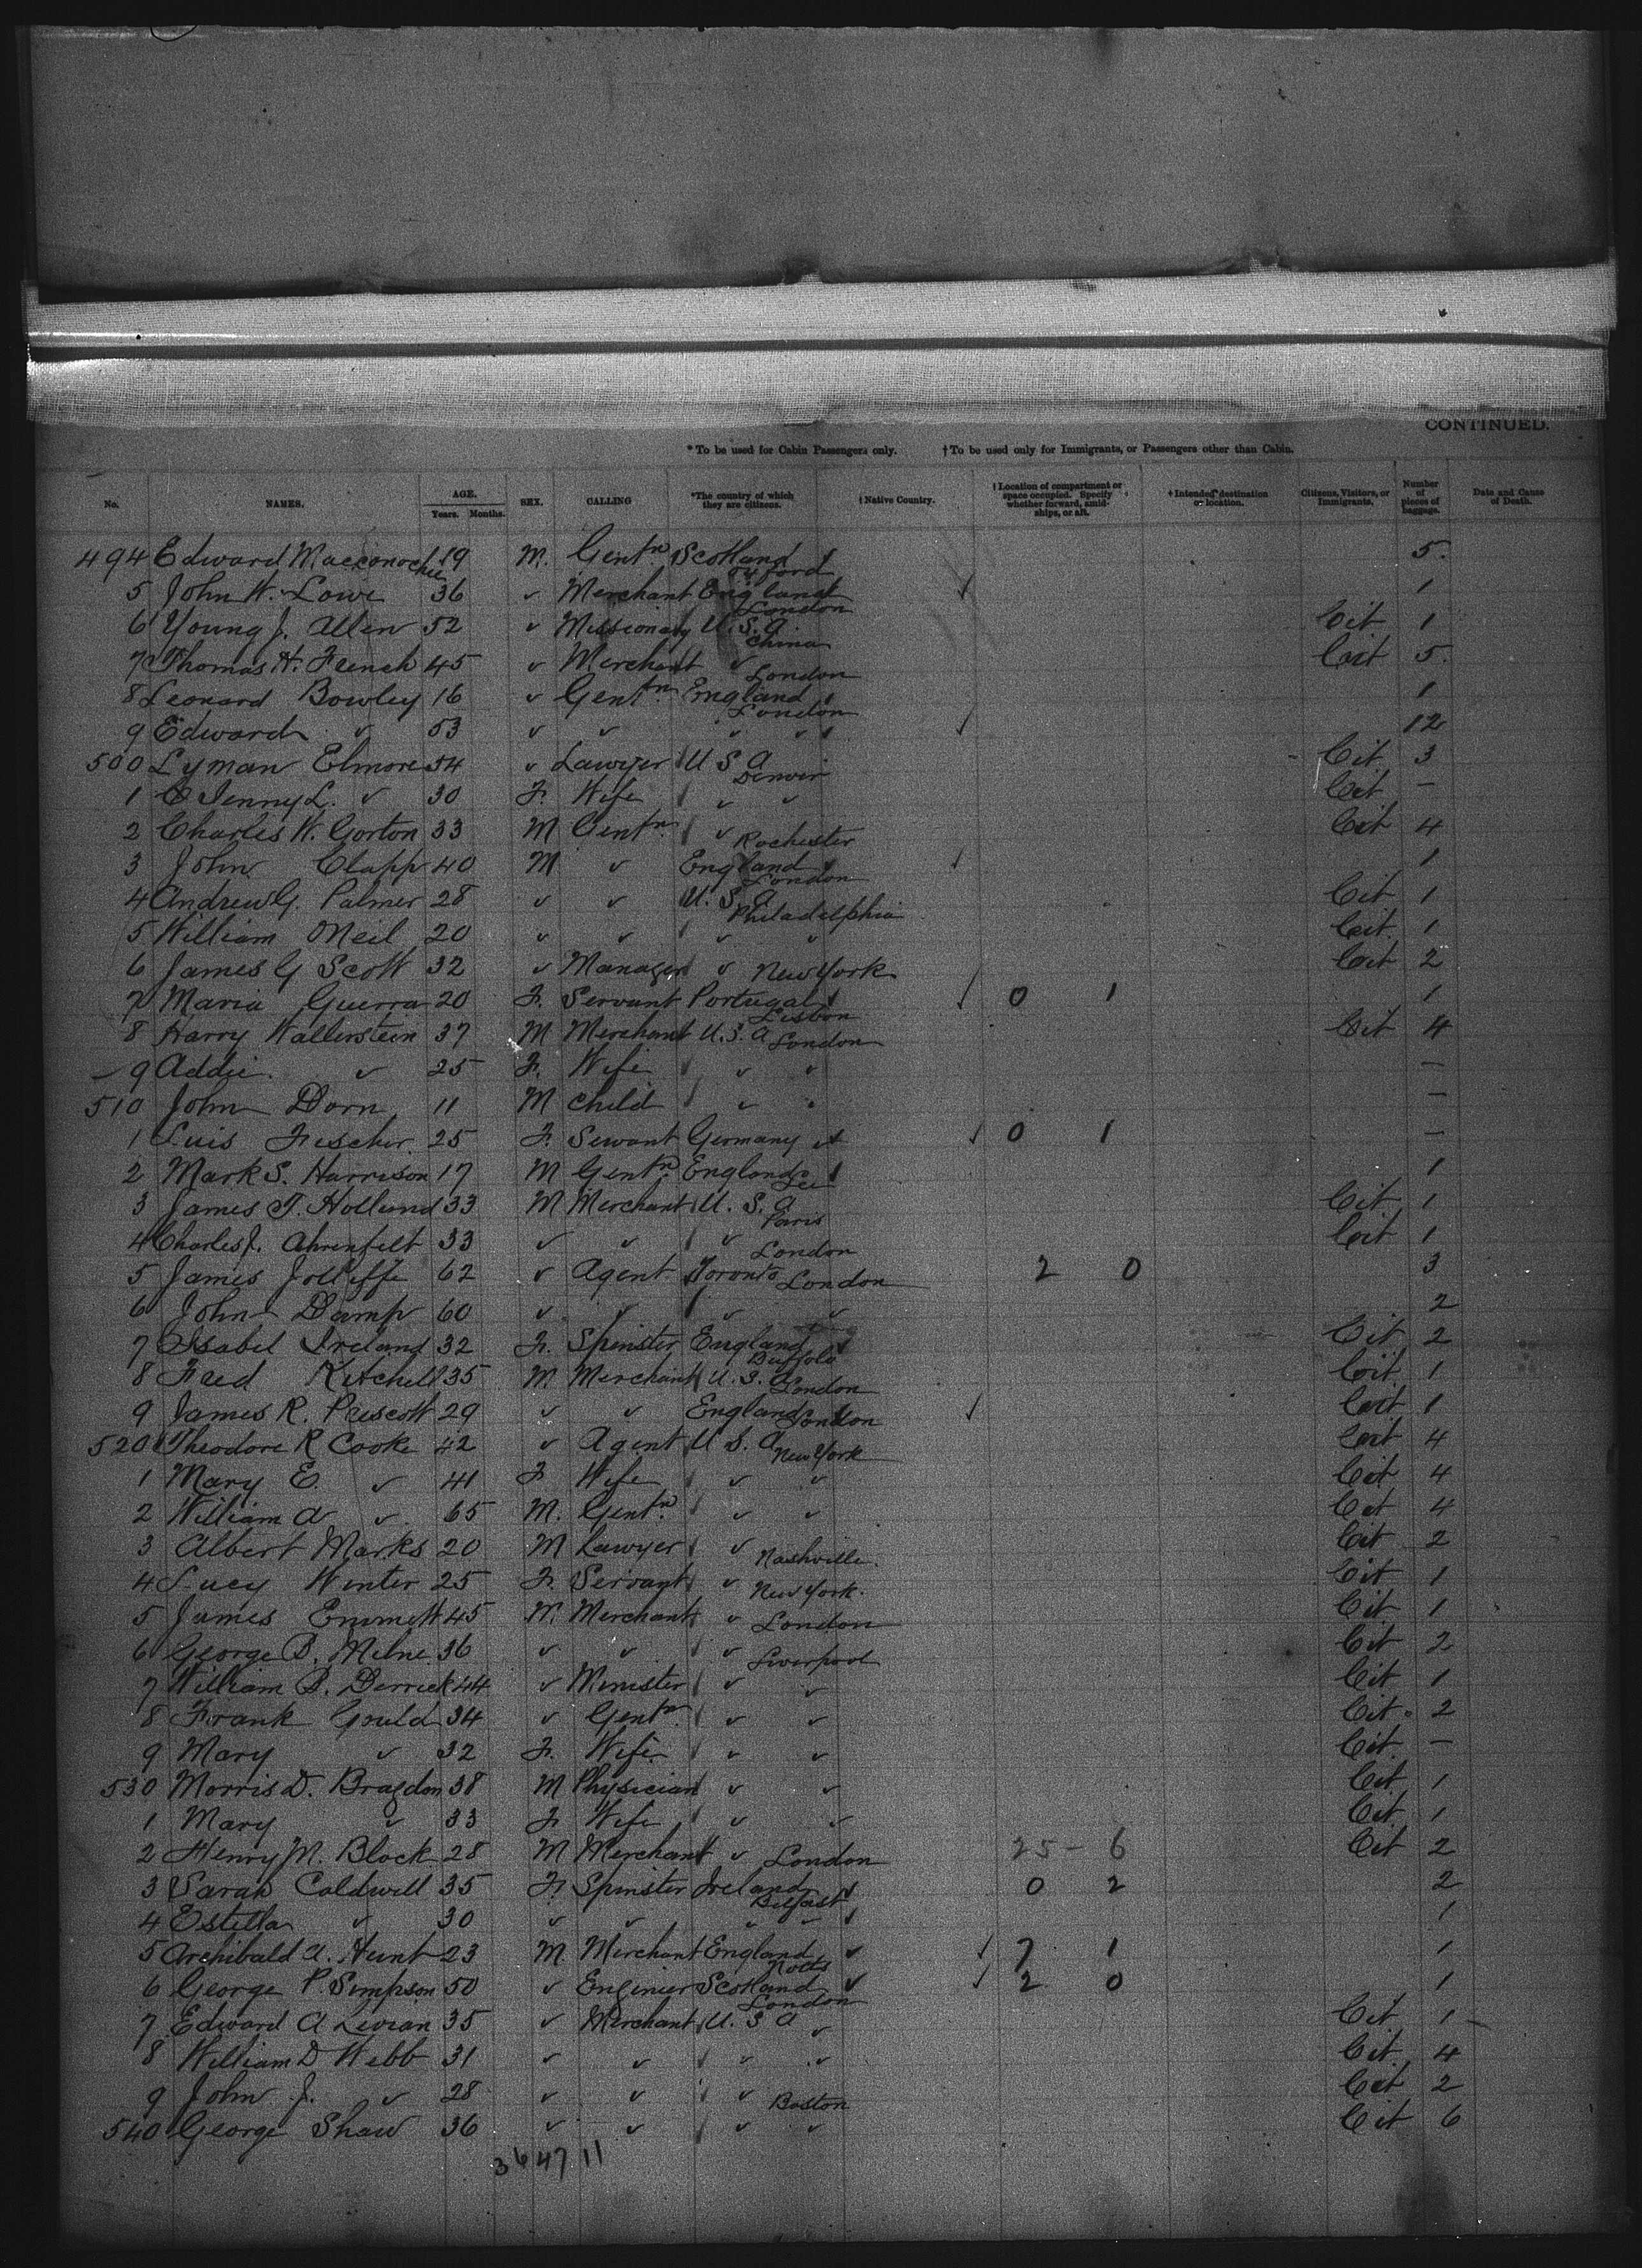 CONTINUED.
*To be used for Cabin Passengers only. †To be used only for Immigrants, or Passengers other than Cabin.
No. NAMES. AGE. Years. Months. SEX. CALLING *The country of which they are citizens. †Native Country. †Location of compartment or space occupied. Specify whether forward, amidships, or aft. †Intended destination or location. Citizens, Visitors, or Immigrants. Number of pieces of baggage. Date and Cause of Death.
494 Edward Macconochie 19 M. Gentn Scotland Oxford 5.
5 John W. Lowe 36 " Merchant England London 1
6 Young J. Allen 52 " Missionary U.S.A. China Cit 1
7 Thomas H. French 45 " Merchant " London Cit 5.
8 Leonard Bowley 16 " Gentn England London 1
9 Edward " 53 " " " " 12
500 Lyman Elmore 34 " Lawyer U S A Denver Cit 3
1 Jenny L. " 30 F. Wife " " Cit —
2 Charles W. Gorton 33 M Gentn " Rochester Cit 4
3 John Clapp 40 M " England London 1
4 Andrew G. Palmer 28 " " U.S.A Philadelphia Cit 1
5 William Neil 20 " " " " Cit 1
6 James G Scott 32 " Manager " New York Cit 2
7 Maria Guerra 20 F. Servant Portugal Lisbon 0 1 1
8 Harry Wallerstein 37 M Merchant U.S.A London Cit 4
9 Addie " 25 F. Wife " " —
510 John Dorn 11 M Child " " —
1 Luis Fischer 25 F. Servant Germany " 0 1 —
2 Mark S. Harrison 17 M Gentn England Lee 1
3 James T. Holland 33 M Merchant U.S.A Paris Cit 1
4 Charles J. Ahrenfelt 33 " " " London Cit 1
5 James Jolliffe 62 " Agent Toronto London 2 0 3
6 John Damp 60 " " " " 2
7 Isabel Ireland 32 F. Spinster England Buffalo Cit 2
8 Fred Kitchell 35 M Merchant U.S.A London Cit 1
9 James R. Prescott 29 " " England London Cit 1
520 Theodore R Cooke 42 " Agent U S. A New York Cit 4
1 Mary E. " 41 F Wife " " Cit 4
2 William A " 65 M. Gentn " " Cit 4
3 Albert Marks 20 M Lawyer " Nashville. Cit 2
4 Lucy Winter 25 F. Servant " New York. Cit 1
5 James Emmett 45 M. Merchant " London Cit 1
6 George B. Milne 36 " " " Liverpool Cit 2
7 William B. Derrick 44 " Minister " " Cit 1
8 Frank Gould 34 " Gentn " " Cit. 2
9 Mary " 32 F. Wife " " Cit —
530 Morris D. Bragdon 38 M Physician " " Cit 1
1 Mary " 33 F Wife " " Cit 1
2 Henry M. Block 28 M Merchant " London 25 - 6 Cit 2
3 Sarah Caldwell 35 F. Spinster Ireland Belfast 0 2 2
4 Estella " 30 " " " " 1
5 Archibald A. Hunt 23 M. Merchant England Notts 7 1 1
6 George P. Simpson 50 " Engineer Scotland London 2 0 1
7 Edward A 35 " Merchant U.S A " Cit 1
8 William D Webb 31 " " " " Cit 4
9 John J. " 28 " " " Boston Cit 2
540 George Shaw 36 " " " " Cit 6
36 47 11